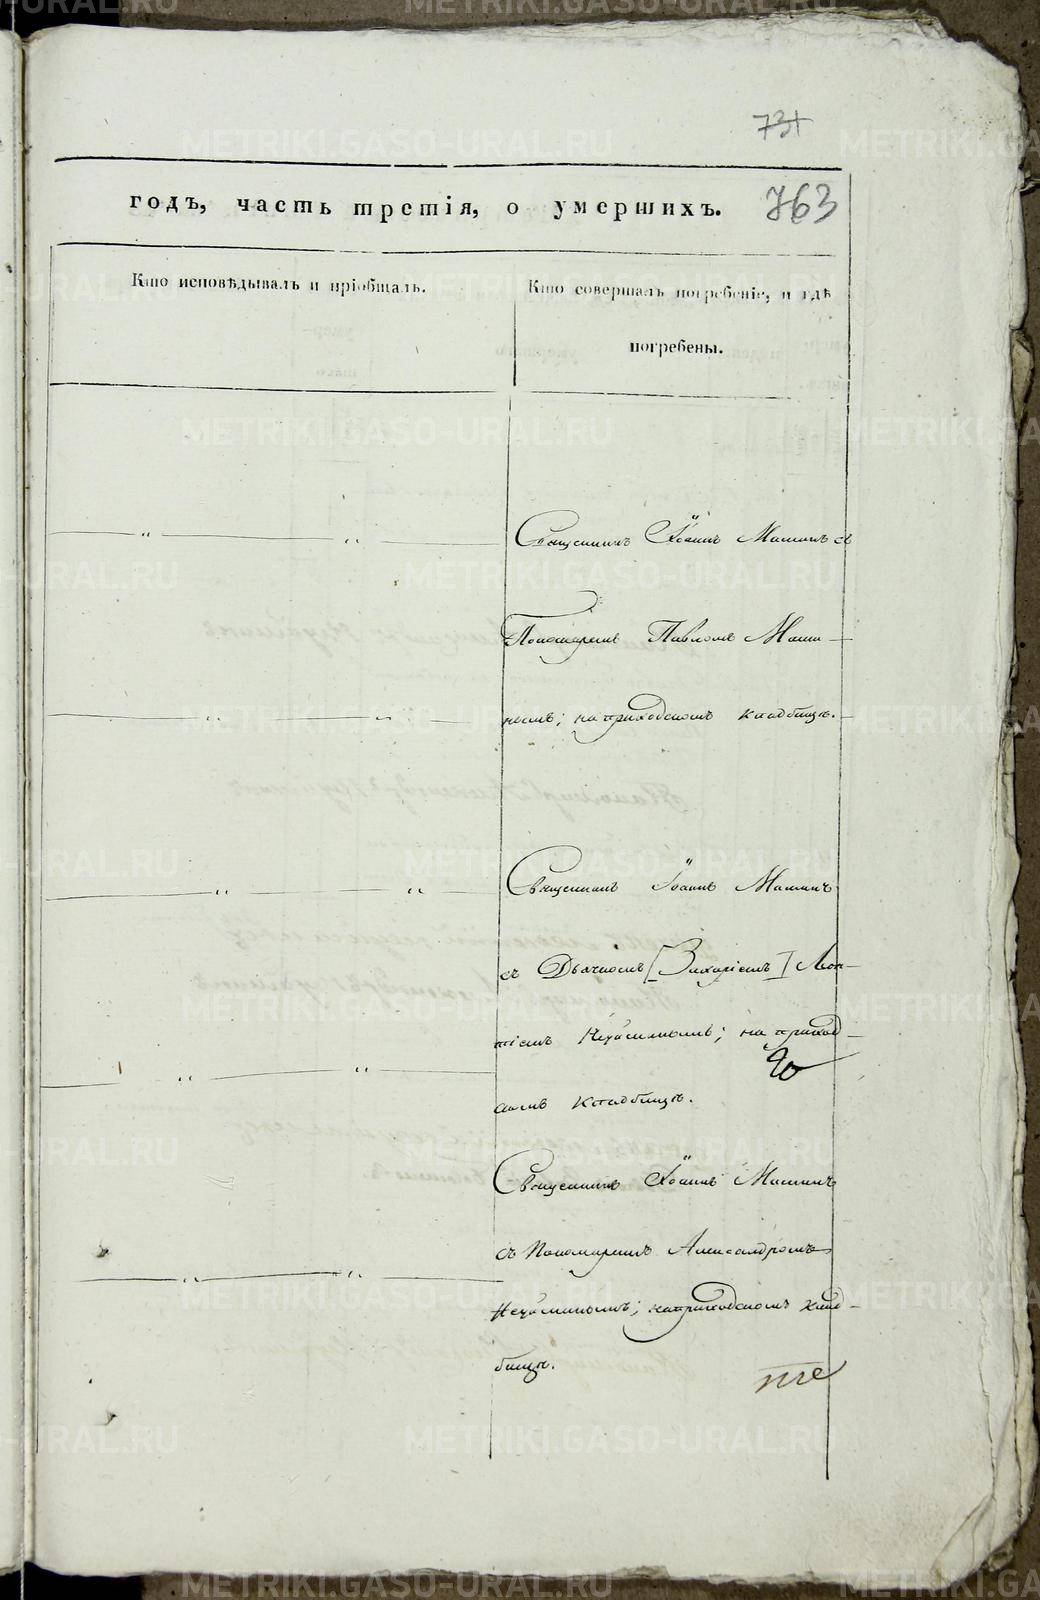 731
763
годъ, часть третія, о умершихъ.
Кто исповѣдывалъ и пріобщалъ.
Кто совершалъ погребеніе, и гдѣ
погребены.
Священникъ Іоаннъ Маминъ съ
Пономаремъ Павломъ Мами-
нымъ; на приходскомъ кладбищѣ.
Священникъ Іоаннъ Маминъ
съ Дьячкомъ [Захаріемъ] Леон-
тіемъ; на приход-
скомъ кладбищѣ.
Священникъ Іоаннъ Маминъ
съ Пономаремъ Александромъ
на приходскомъ клад-
бищѣ.
METRIKI.GASO-URAL.RU